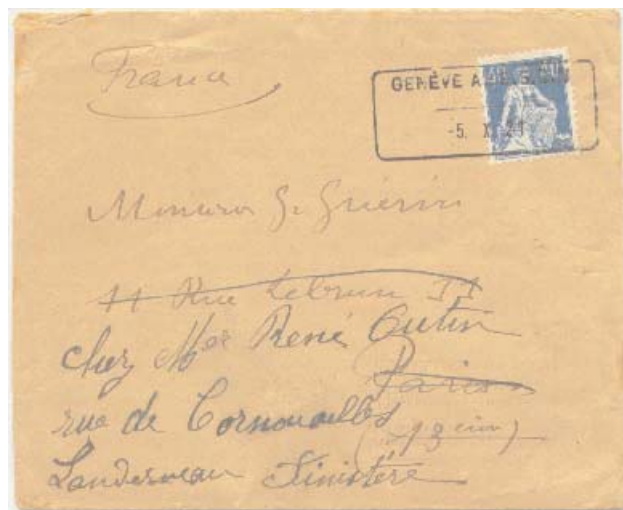 France
GENÈVE
-5. X
Monsieur G. Guérin
11 Rue Lebrun 11
chez Mer René Autin
Paris
rue de Cornouailles
(13 eim)
Landerneau Finistère